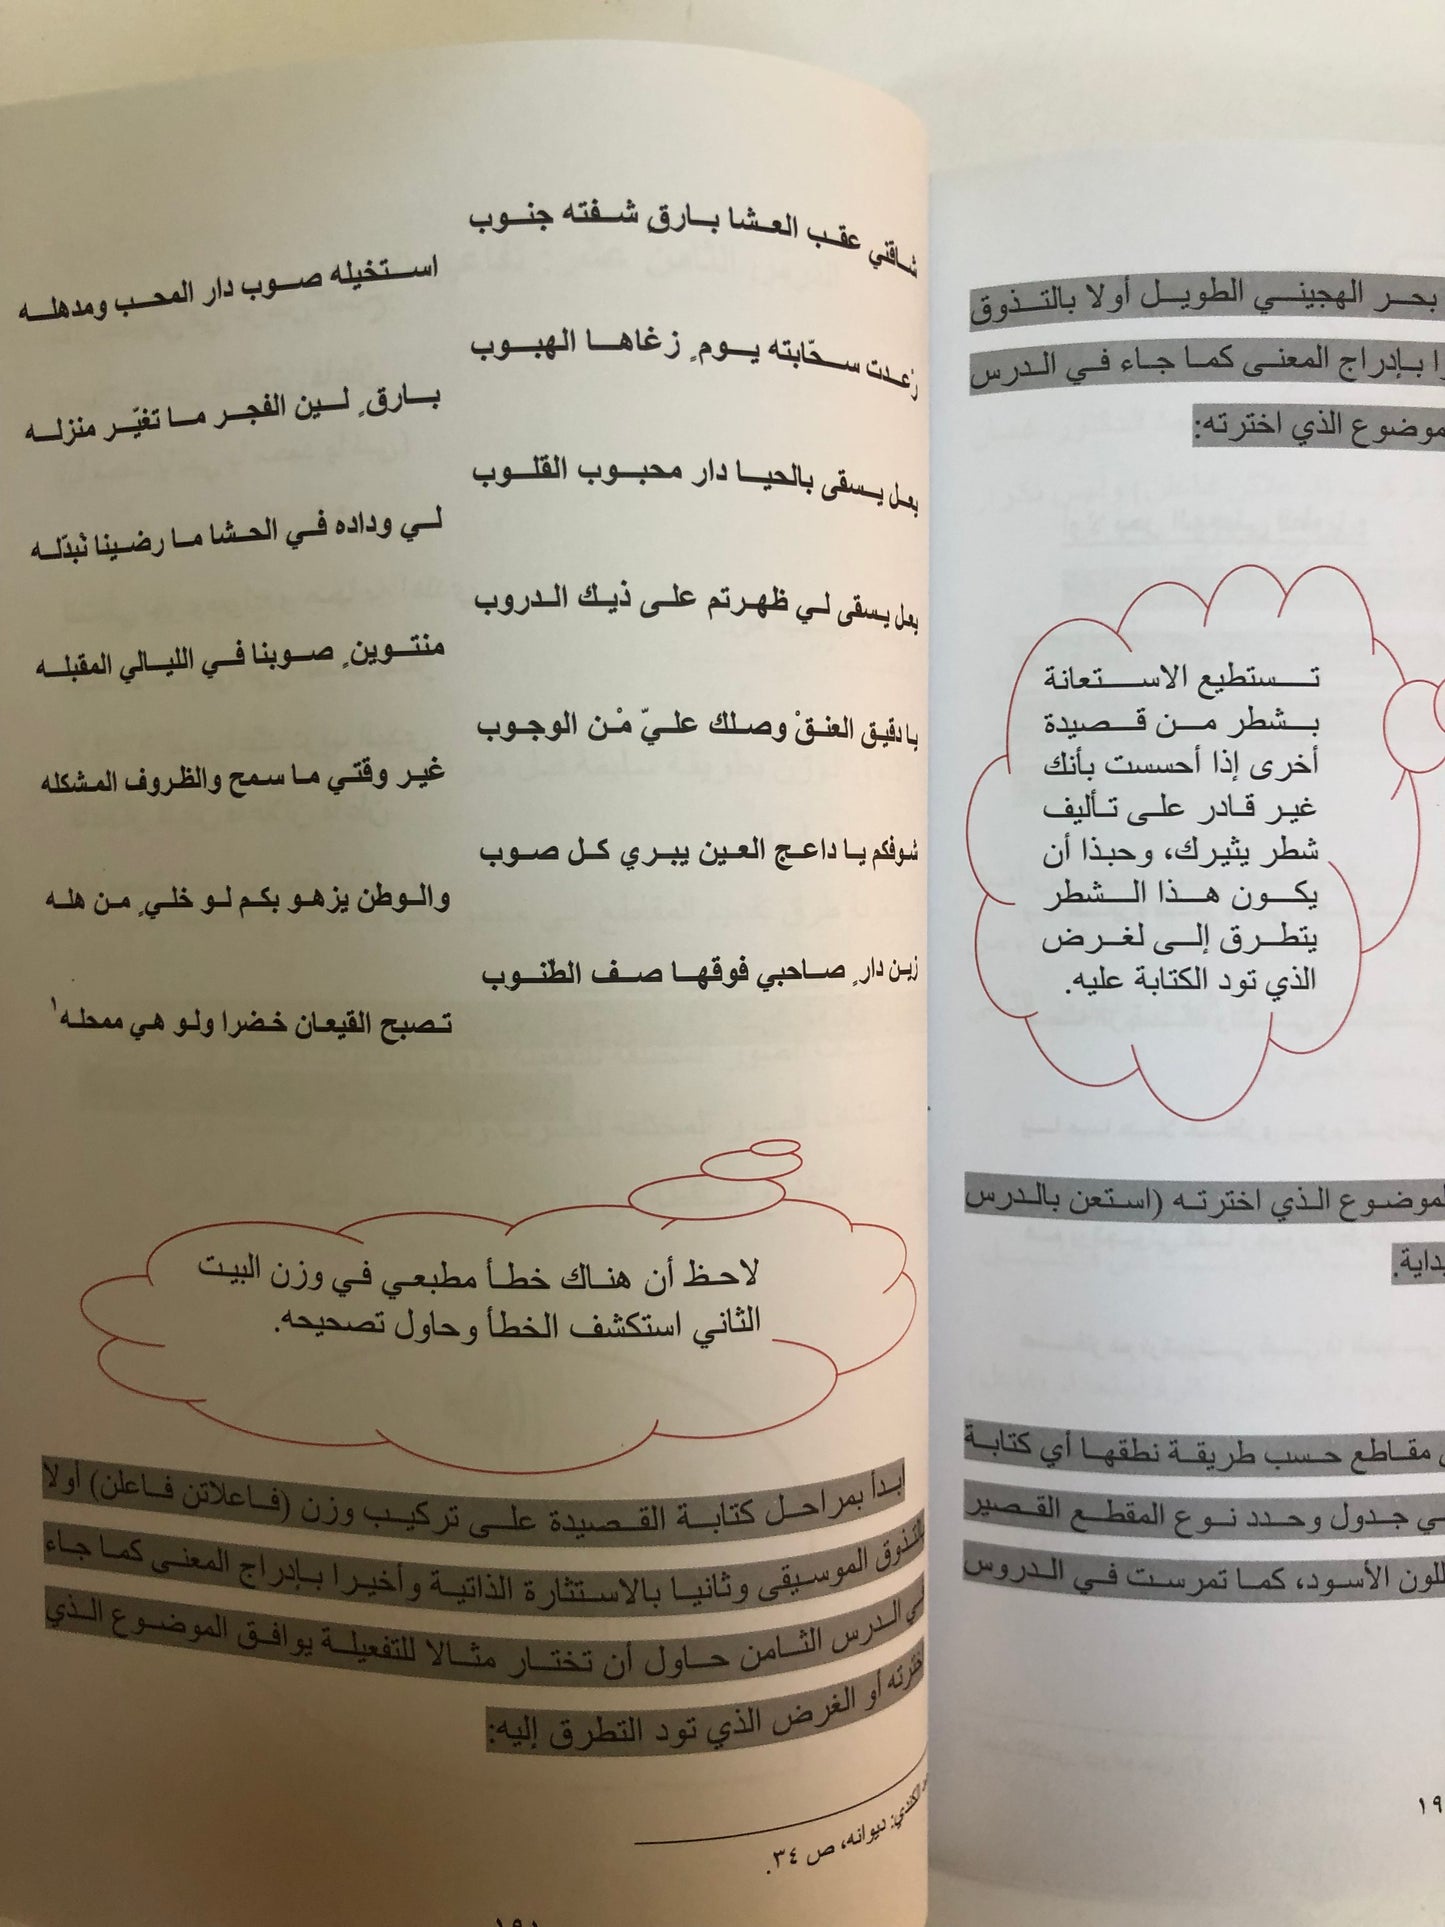 بحر الهجيني الطويل أولا بالتذوق
بإدراج المعنى كما جاء في الدرس
الذي اخترته:
تستطيع الاستعانة
بشطر من قصيدة
أخرى إذا أحسست بأنك
غير قادر على تأليف
شطر يثيرك، وحبذا أن
يكون هذا الشطر
يتطرق إلى لغرض
الذي تود الكتابة عليه.
الذي اخترته (استعن بالدرس
مقاطع حسب طريقة نطقها أي كتابة
جدول وحدد نوع المقطع القصير
الأسود، كما تمرست في الدروس
شاقني عقب العشا بارقٍ شفته جنوب
استخيله صوب دار المحب ومدهله
رْعدت سحّابته يومٍ زغاها الهبوب
بارقٍ لين الفجر ما تغيّر منزله
بعل يسقى بالحيا دار محبوب القلوب
لي وداده في الحشا ما رضينا نْبدّله
بعل يسقى لي ظهرتم على ذيك الدروب
منتوينٍ صوبنا في الليالي المقبله
يا دقيق العنقْ وصلك عليّ مْن الوجوب
غير وقتي ما سمح والظروف المشكله
شوفكم يا داعج العين يبري كل صوب
والوطن يزهو بكم لو خليٍ من هله
زين دارٍ صاحبي فوقها صف الطّنوب
تصبح القيعان خضرا ولو هي ممحله١
لاحظ أن هناك خطأ مطبعي في وزن البيت
الثاني استكشف الخطأ وحاول تصحيحه.
ابدأ بمراحل كتابة القصيدة على تركيب وزن (فاعلاتن فاعلن) أولا
بالتذوق الموسيقى وثانيا بالاستثارة الذاتية وأخيرا بإدراج المعنى كما جاء
في الدرس الثامن حاول أن تختار مثالا للتفعيلة يوافق الموضوع الذي
اخترته أو الغرض الذي تود التطرق إليه:
الكندي: ديوانه، ص ٣٤.